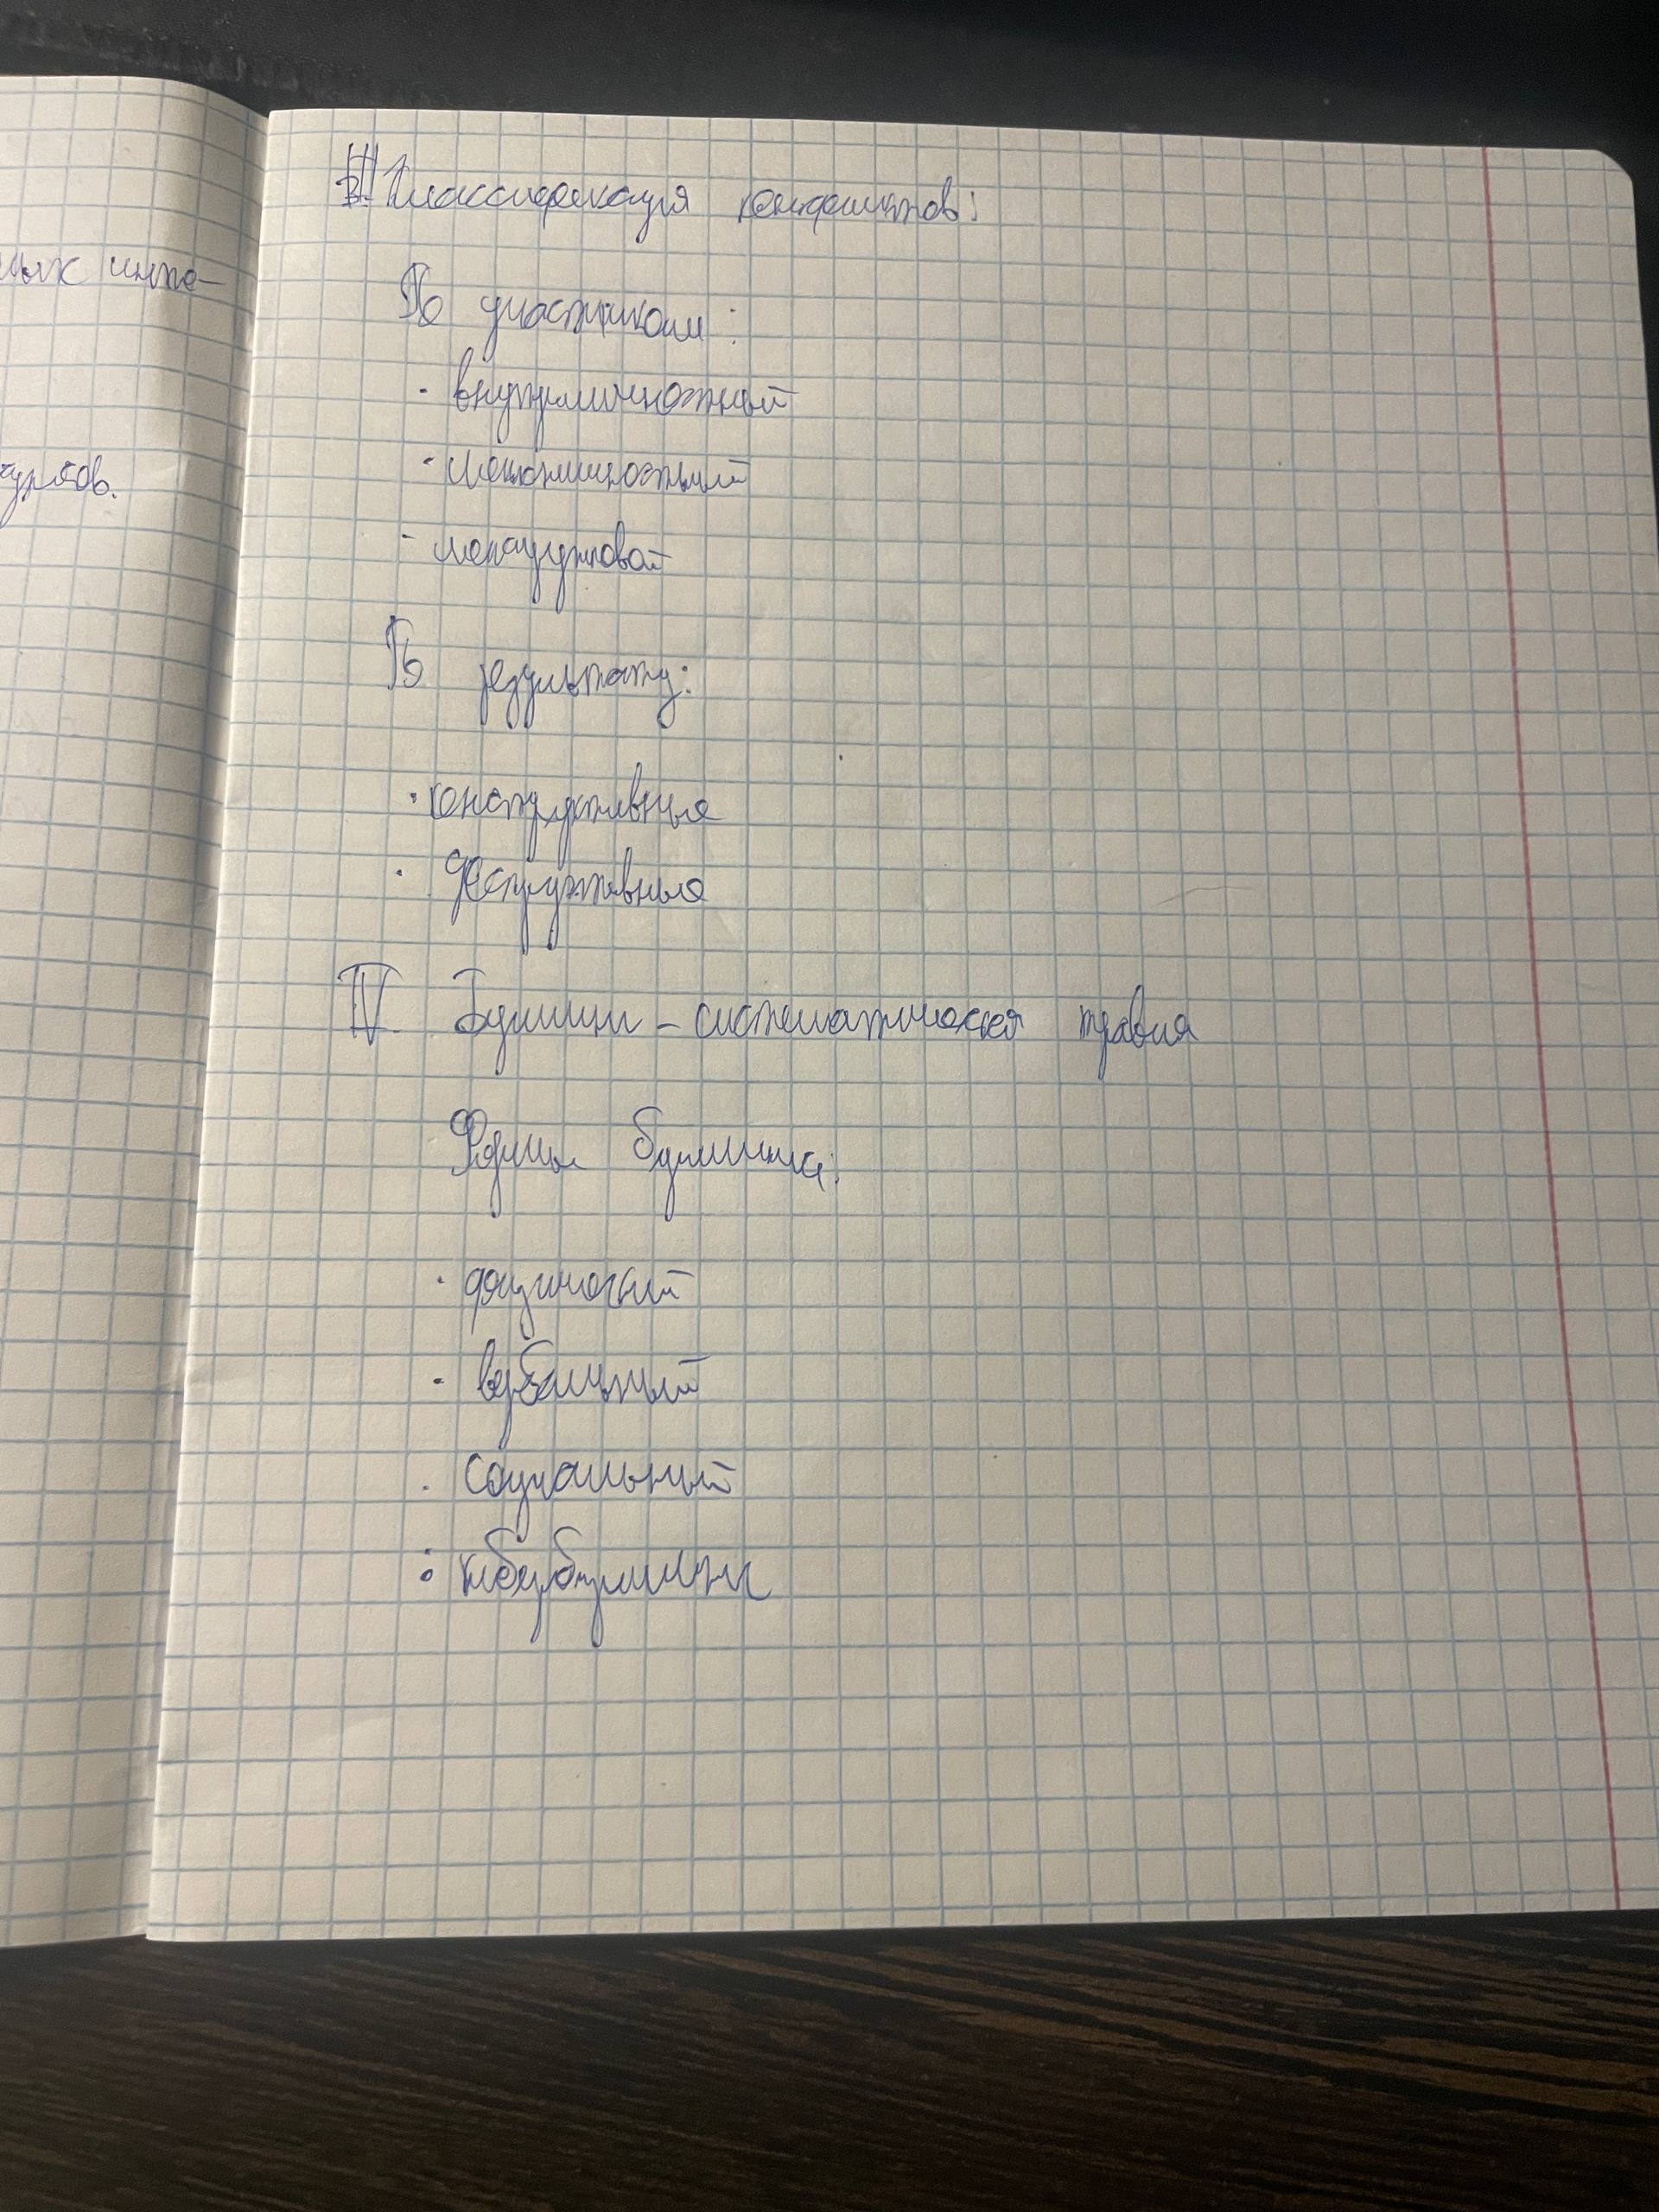 ных инте-
III Классификация конфликтов:
По участникам:
· внутриличностный
· межличностный
- межгрупповой
По результату:
· конструктивные
· деструктивные
IV. Буллинг - систематическая травля
Формы буллинга:
· физический
· вербальный
· социальный
· кибербуллинг